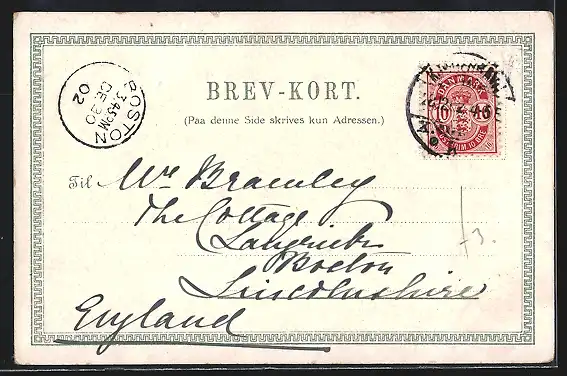 BREV-KORT.
(Paa denne Side skrives kun Adressen.)
BOSTON
3.45PM
DE 30
02
DANMARK
10
Til Mr Bramley
The Cottage
Langrick
Boston
Lincolnshire
England